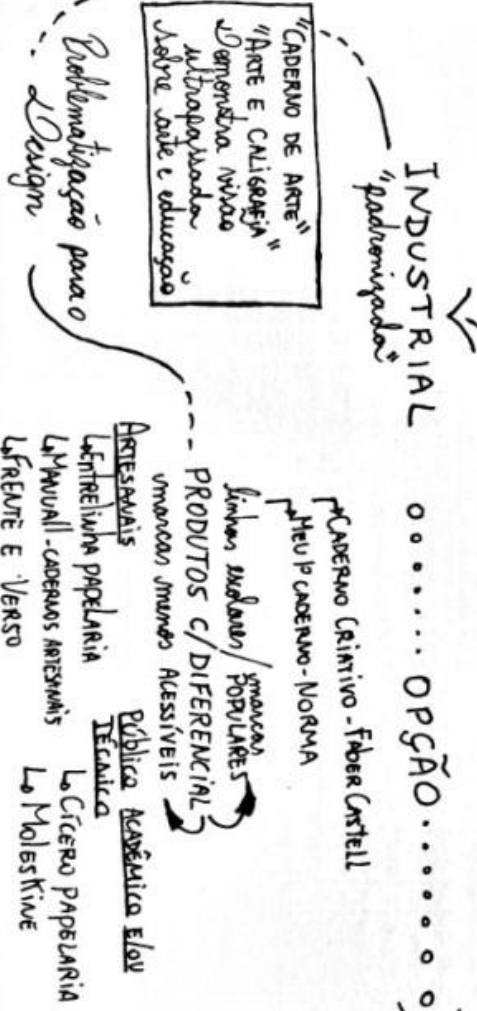 INDUSTRIAL
"padronizada"
"CADERNO DE ARTE"
"ARTE E CALIGRAFIA"
Demonstra visão
ultrapassada
sobre arte e educação
Problematização para o
Design
OPÇÃO
CADERNO CRIATIVO - FABER CASTELL
MEU 1º CADERNO - NORMA
linhas escolares / marcas
POPULARES
PRODUTOS C/ DIFERENCIAL
marcas menos ACESSÍVEIS
ARTESANAIS
ENTRELINHA PAPELARIA
MANUALL - CADERNOS ARTESANAIS
FRENTE E VERSO
Público ACADÊMICO E/OU
TÉCNICO
CÍCERO PAPELARIA
MOLESKINE